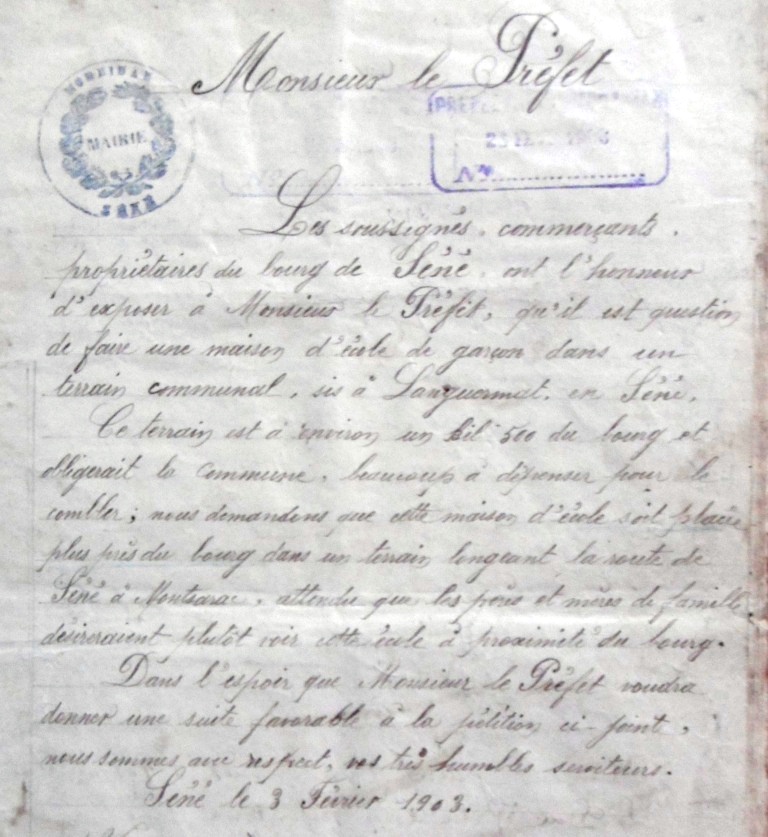 Monsieur le Préfet
MORBIHAN
MAIRIE
SÉNÉ
PRÉFECTURE
N°
Les soussignés, commerçants,
propriétaires du bourg de Séné, ont l'honneur
d'exposer à Monsieur le Préfet, qu'il est question
de faire une maison d'école de garçon dans un
terrain communal, sis à Languormat, en Séné.
Ce terrain est à environ un kil 500 du bourg et
obligerait la commune, beaucoup à dépenser pour le
combler; nous demandons que cette maison d'école soit placée
plus près du bourg dans un terrain longeant la route de
Séné à Montsarac, attendu que les pères et mères de famille
désireraient plutôt voir cette école à proximité du bourg.
Dans l'espoir que Monsieur le Préfet voudra
donner une suite favorable à la pétition ci-jointe,
nous sommes avec respect, vos très humbles serviteurs.
Séné le 3 Février 1903.